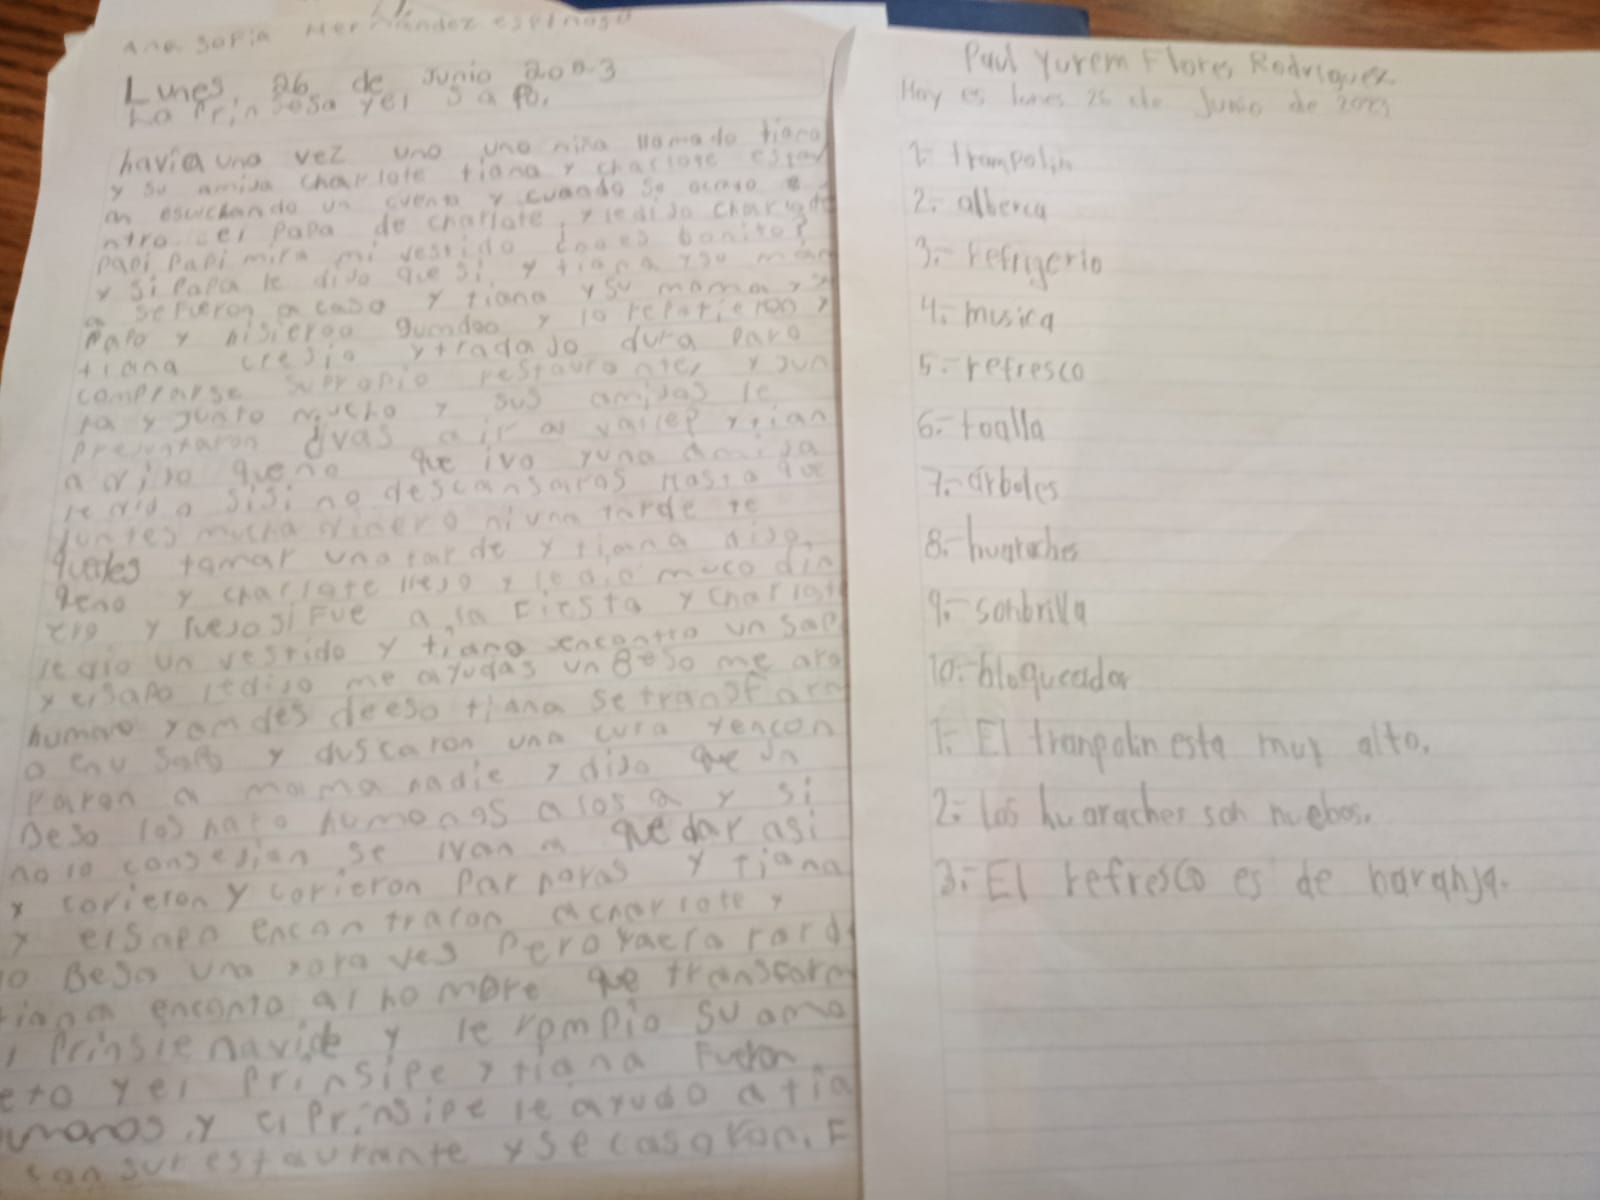 Ana Sofia Hernández espinosa
Lunes, 26 de Junio 2023
La Prinsesa y el Sapo.
havia una vez uno uno niña llamado tiana
y su amiga charlote tiana y charlote estav
an escuchando un cuento y cuando se
ntro el papa de charlote, y le dijo
papi papi mira mi vestido ¿no es bonito?
y Si Papa le dijo que si, y tiana y su mam
a se fueron a casa y tiana y su mama y
papo y hisieron y lo repatieron y
tiana cresio y tradajo dura paro
comprarse su propio restaurante, y jun
ta y junto mucho y sus amigas le
a ir a y tian
a dijo que no que iva y una amiga
le dijo si si no descansaras hasta que
juntes mucha dinero ni una tarde te
puedes tomar una tarde y tiana dijo
y charlote llejo y le dio muco din
ero y luejo si fue a la Fiesta y charlot
le dio un vestido y tiana encontro un sap
y el sapo le dijo me ayudas un Beso me ara
humano y deeso tiana se transform
o en u Sapo y duscaron una cura y encon
raron a mama nadie y dijo que un
Beso los haro humanos a los a y si
no lo consegian se ivan a quedar asi
y corieron y corieron par horas y tiana
y el sapo encontraron a charlote y
lo Beso una ves pero ya era tard
tiana al homere que transform
Prinsie navide y le rompio su amo
eto y el Prinsipe y tiana Fueron
umanos, y el Prinsipe le ayudo a tia
con su restaurante y se casaron. F
Paul Yurem Flores Rodriguez
Hoy es lunes 26 de Junio de 2023
1.- trampolin
2.- alberca
3.- refrigerio
4.- musica
5.- refresco
6.- toalla
7.- árboles
8.- huaraches
9.- sonbrilla
10.- bloqueador
1.- El tranpolin esta muy alto.
2.- Los huaraches son nuebos.
3.- El refresco es de naranja.